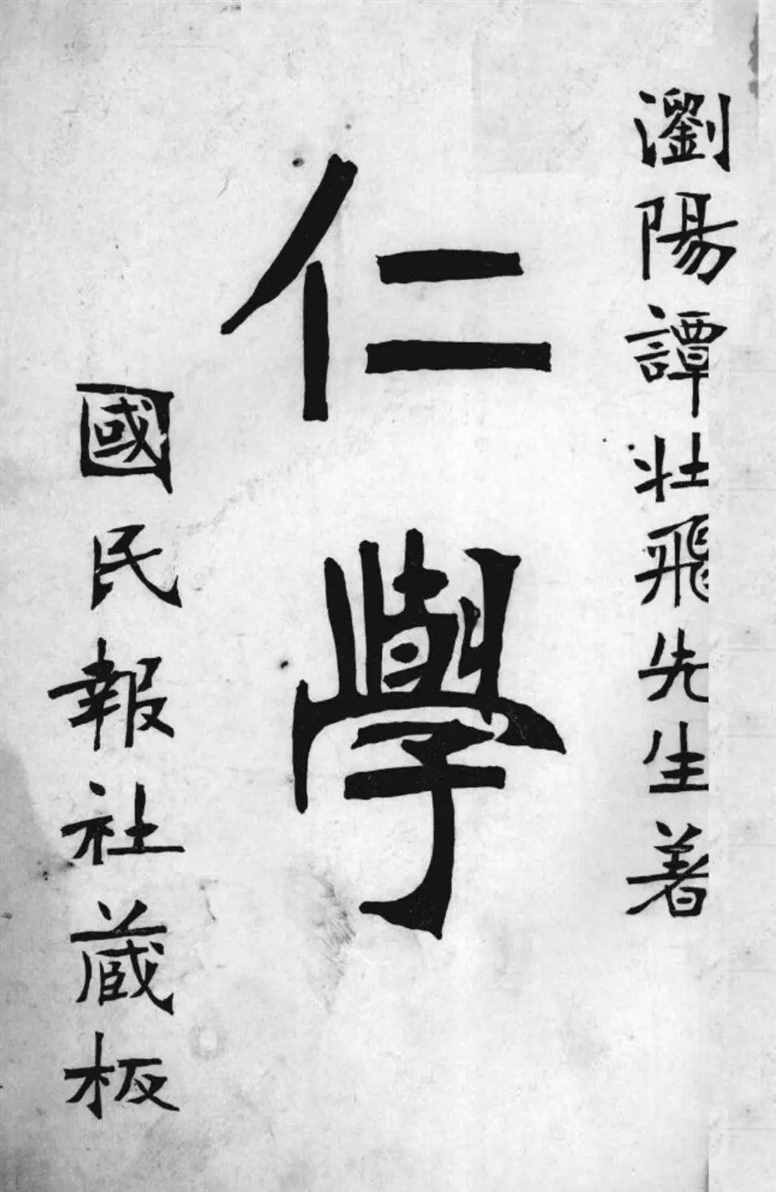 瀏陽譚壯飛先生著
仁學
國民報社蔵板